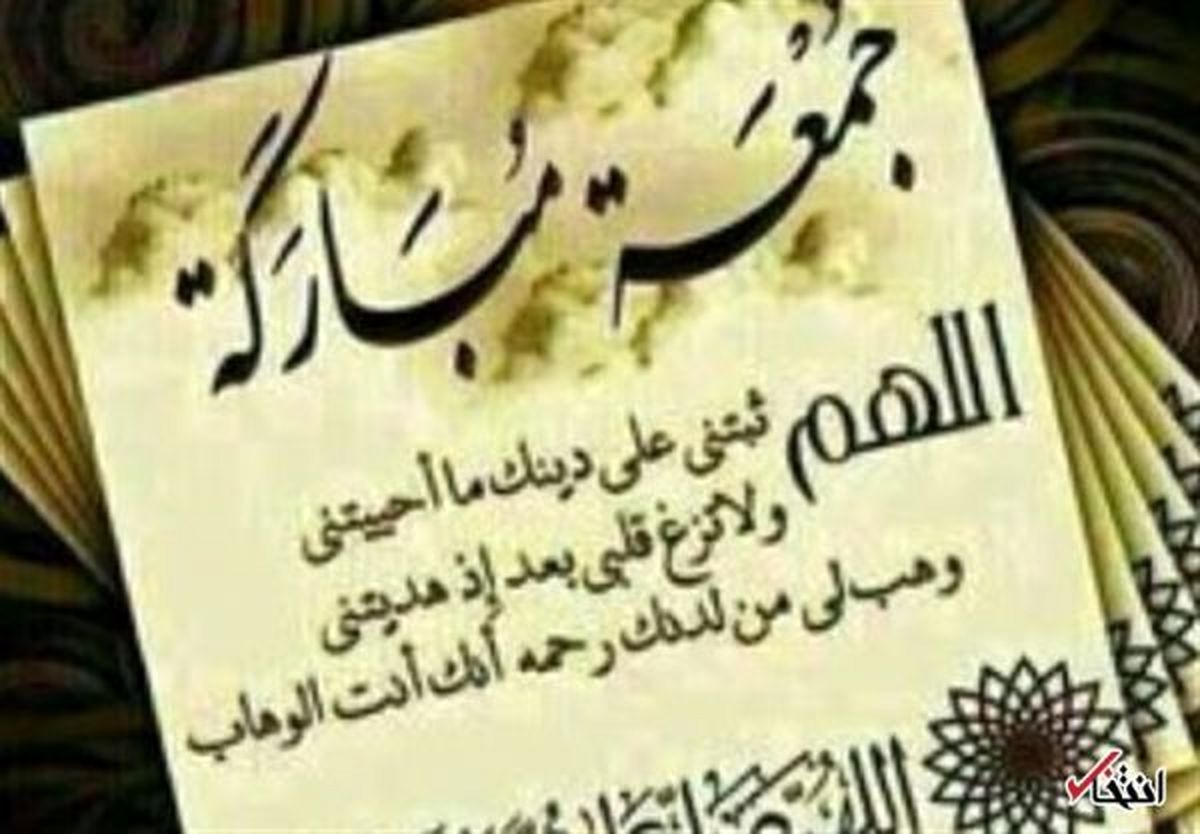 جُمعَة مُبَارَكَة
اللهم ثبتنی علی دینك ما أحییتنی
ولا تزغ قلبی بعد إذ هدیتنی
وهب لی من لدنك رحمه أنك أنت الوهاب
انتخاب